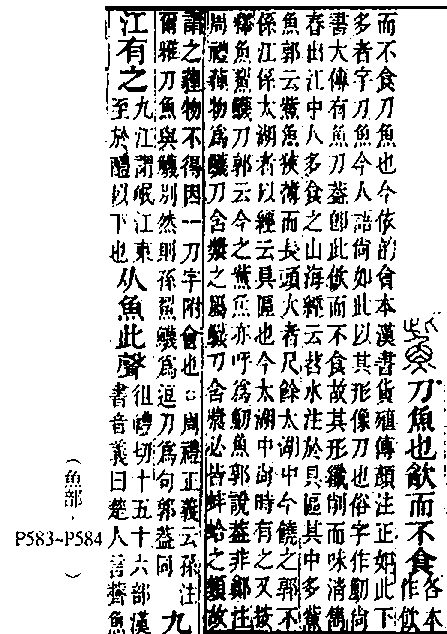 鮆 刀魚也㱃而不食 各本作㱃
而不食刀魚也今依韵會本漢書貨殖傳顏注正如此下
多者字刀魚今人語尙如此以其形像刀也俗字作魛尙
書大傳有魚刀葢卽此㱃而不食故其形纖削而味清雋
春出江中人多食之山海經云苕水注於具區其中多鮆
魚郭云鮆魚狹薄而長頭大者尺餘太湖中今饒之郭不
係江係太湖者以經云具區也今太湖中尙時有之又按
釋魚鮤鱴刀郭云今之鮆魚亦呼爲魛魚郭說葢非鄭注
周禮貍物爲鱴刀含漿之屬鱴刀含漿必皆蚌蛤之類故
謂之貍物不得因一刀字附會也○周禮正義云孫注
爾雅刀魚與鱴別然則孫鮤鱴爲逗刀爲句郭葢同 九
江有之 九江謂岷江東至於醴以下也 从魚此聲 徂禮切十五十六部漢書音義曰楚人言薺魚
（魚部，P583~P584）